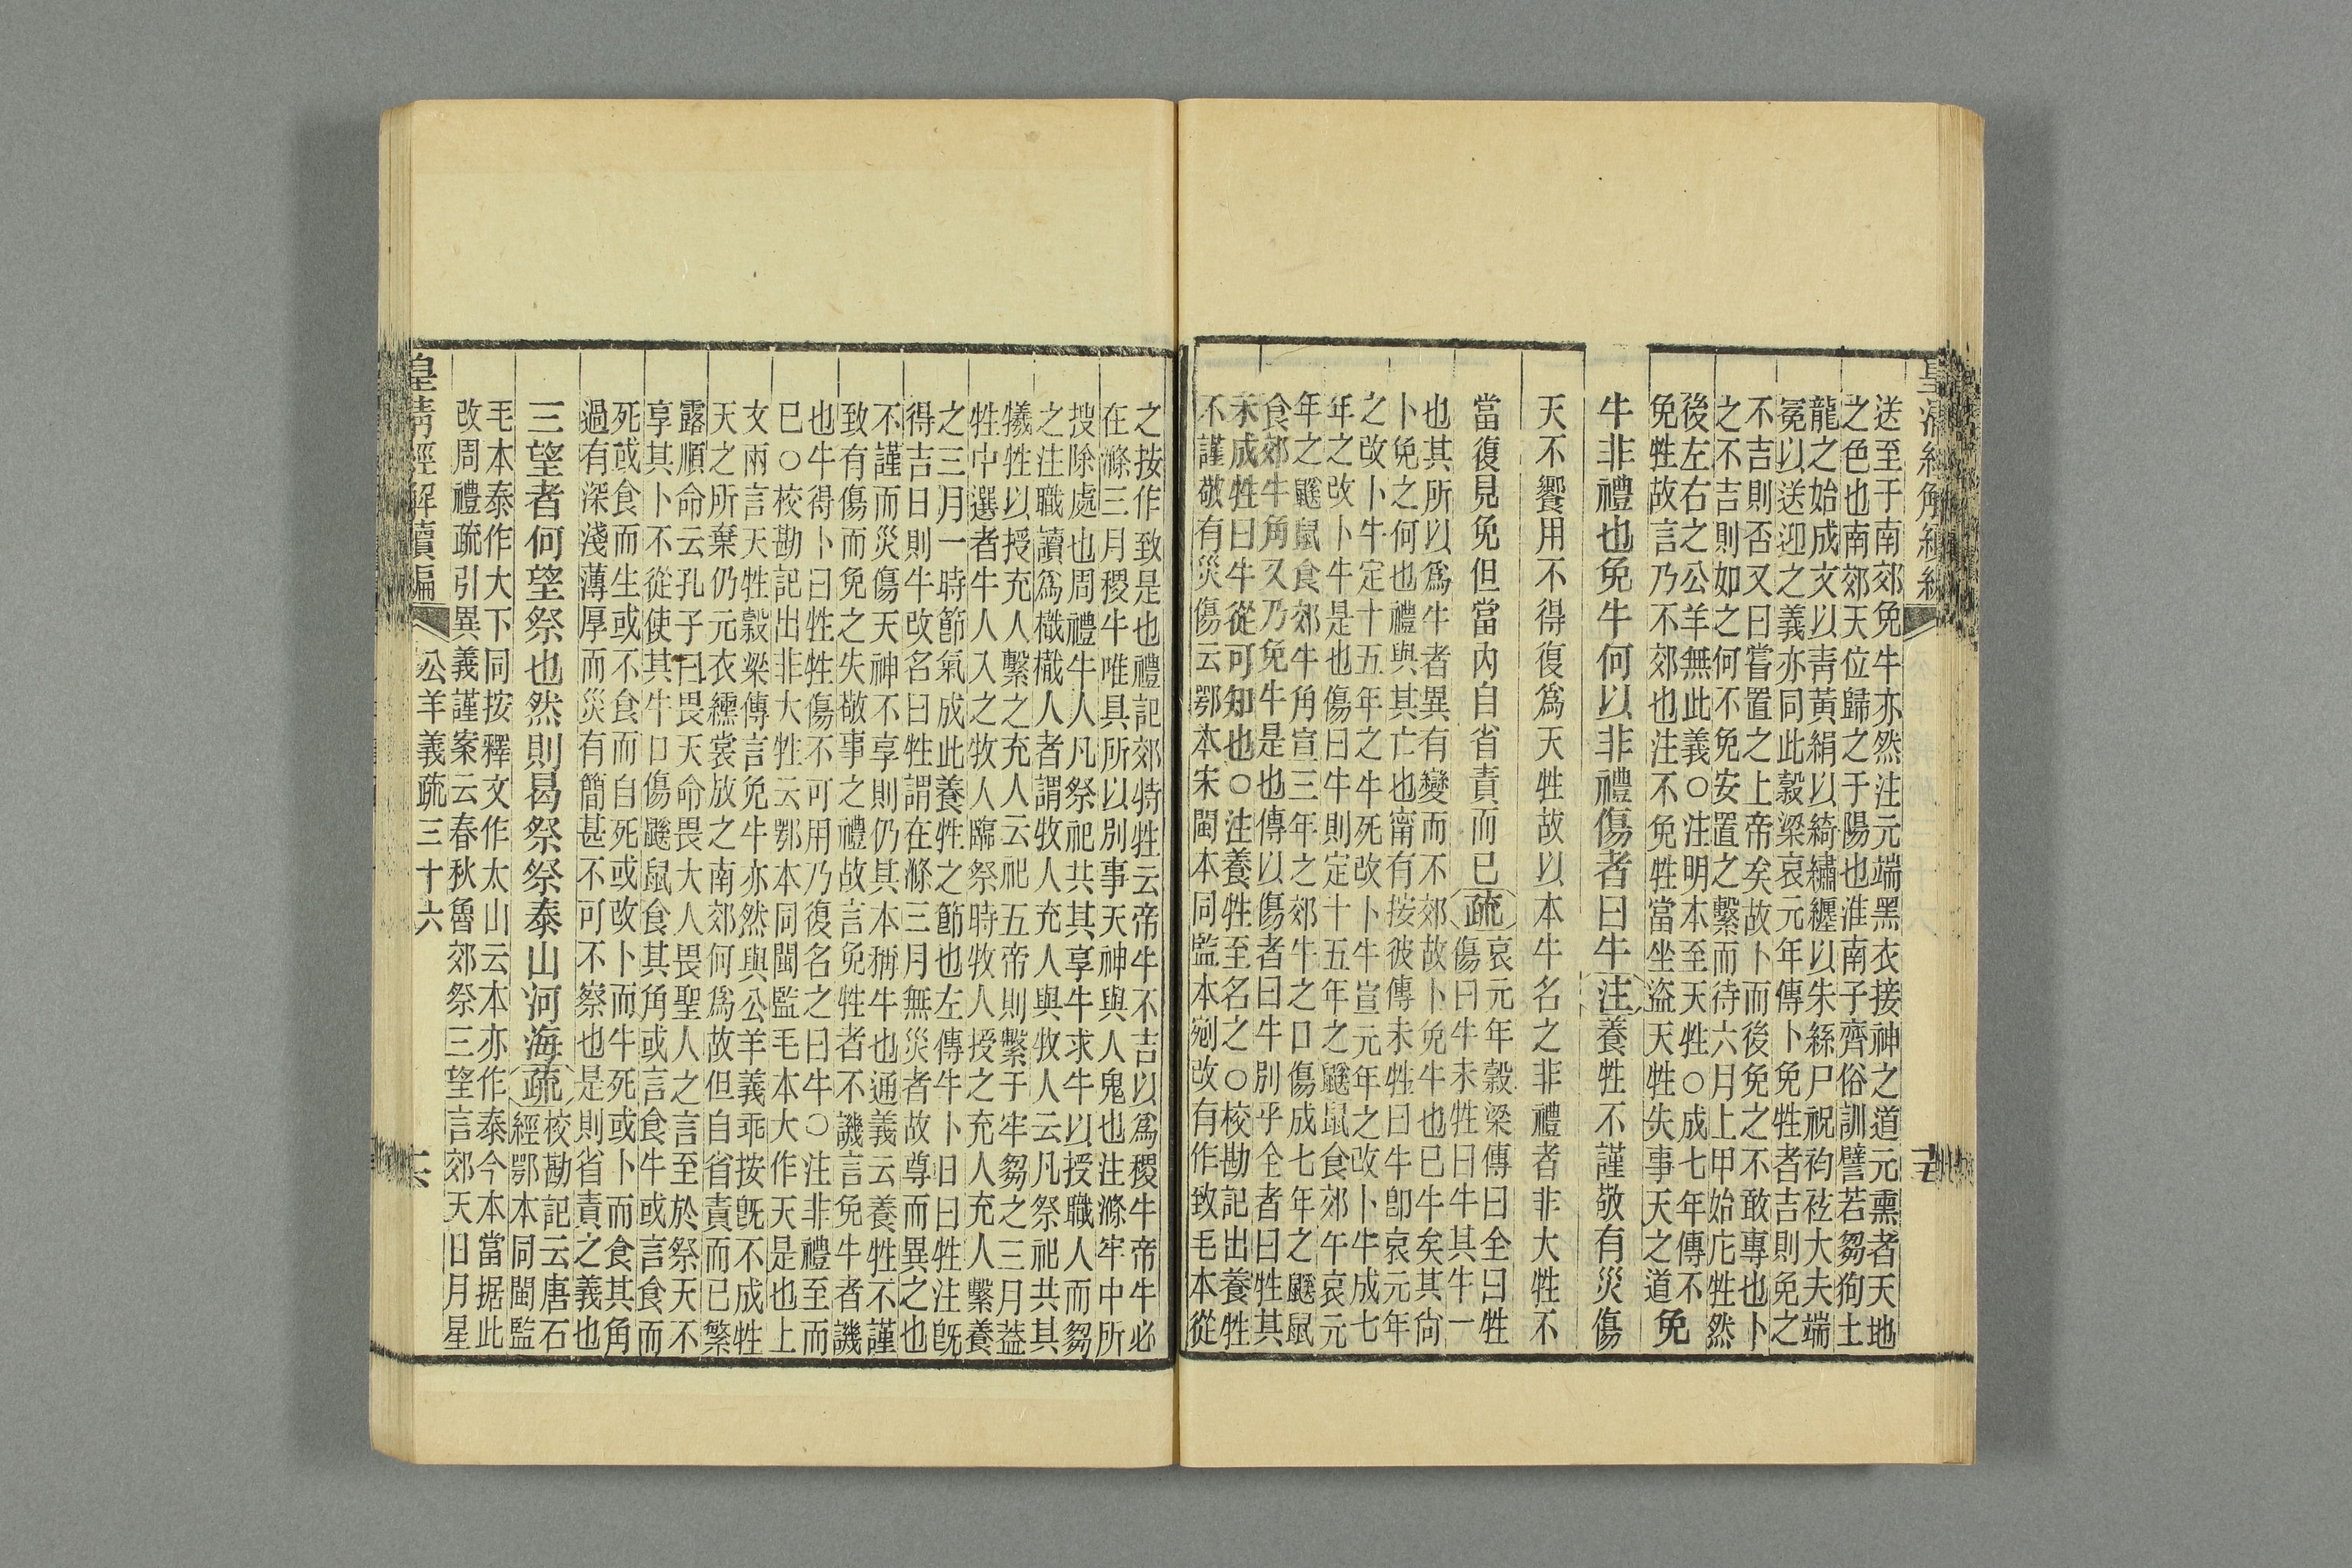 送至于南郊免牛亦然注元端黑衣接神之道元熏者天地
之色也南郊天位歸之于陽也淮南子齊俗訓譬若芻狗土
龍之始成文以靑黃絹以綺繡纒以朱絲尸祝袀袨大夫端
冕以送迎之義亦同此穀梁哀元年傳卜免牲者吉則免之
不吉則否又曰嘗置之上帝矣故卜而後免之不敢專也卜
之不吉則如之何不免安置之繫而待六月上甲始庀牲然
後左右之公羊無此義○注明本至天牲○成七年傳不
免牲故言乃不郊也注不免牲當坐盜天牲失事天之道免
牛非禮也免牛何以非禮傷者曰牛注養牲不謹敬有災傷
天不饗用不得復爲天牲故以本牛名之非禮者非大牲不
當復見免但當內自省責而已疏
哀元年穀梁傳曰全曰牲
傷曰牛未牲曰牛其牛一
也其所以爲牛者異有變而不郊故卜免牛也已牛矣其尙
卜免之何也禮與其亡也甯有按彼傳未牲曰牛卽哀元年
之改卜牛定十五年之牛死改卜牛豈元年之改卜牛成七
年之改卜牛是也傷曰牛則定十五年之鼷鼠食郊牛哀元
年之鼷鼠食郊牛角宣三年之郊牛之口傷成七年之鼷鼠
食郊牛角又乃免牛是也傳以傷者曰牛別乎全者曰牲其
未成牲曰牛從可知也○注養牲至名之○校勘記出養牲
不謹敬有災傷云鄂本宋閩本同監本剜改有作致毛本從
之按作致是也禮記郊特牲云帝牛不吉以爲稷牛帝牛必
在滌三月稷牛唯具所以別事天神與人鬼也注滌牢中所
搜除處也周禮牛人凡祭祀共其享牛求牛以授職人而芻
之注職讀爲樴樴人者謂牧人充人與牧人云凡祭祀共其
犧牲以授充人繫之充人云祀五帝則繫于牢芻之三月葢
牲中選者牛人入之牧人臨祭時牧人授之充人充人繫養
之三月一時節氣成此養牲之節也左傳牛卜日曰牲注旣
得吉日則牛改名曰牲謂在滌三月無災者故尊而異之也
不謹而災傷天神不享則仍其本稱牛也通義云養牲不謹
致有傷而免之失敬事之禮故言免牲者不譏言免牛者譏
也牛得卜曰牲牲傷不可用乃復名之曰牛○注非禮至而
已○校勘記出非大牲云鄂本同閩監毛本大作天是也上
文兩言天牲穀梁傳言免牛亦然與公羊義乖按旣不成牲
天之所棄仍元衣纁裳放之南郊何爲故但自省責而已繁
露順命云孔子曰畏天命畏大人畏聖人之言至於祭天不
享其卜不從使其牛口傷鼷鼠食其角或言食牛或言食而
死或食而生或不食而自死或改卜而牛死或卜而食其角
過有深淺薄厚而災有簡甚不可不察也是則省責之義也
三望者何望祭也然則曷祭祭泰山河海疏
校勘記云唐石
經鄂本同閩監
毛本泰作大下同按釋文作太山云本亦作泰今本當据此
改周禮疏引異義謹案云春秋魯郊祭三望言郊天日月星
皇清經解續編
公羊義疏三十六